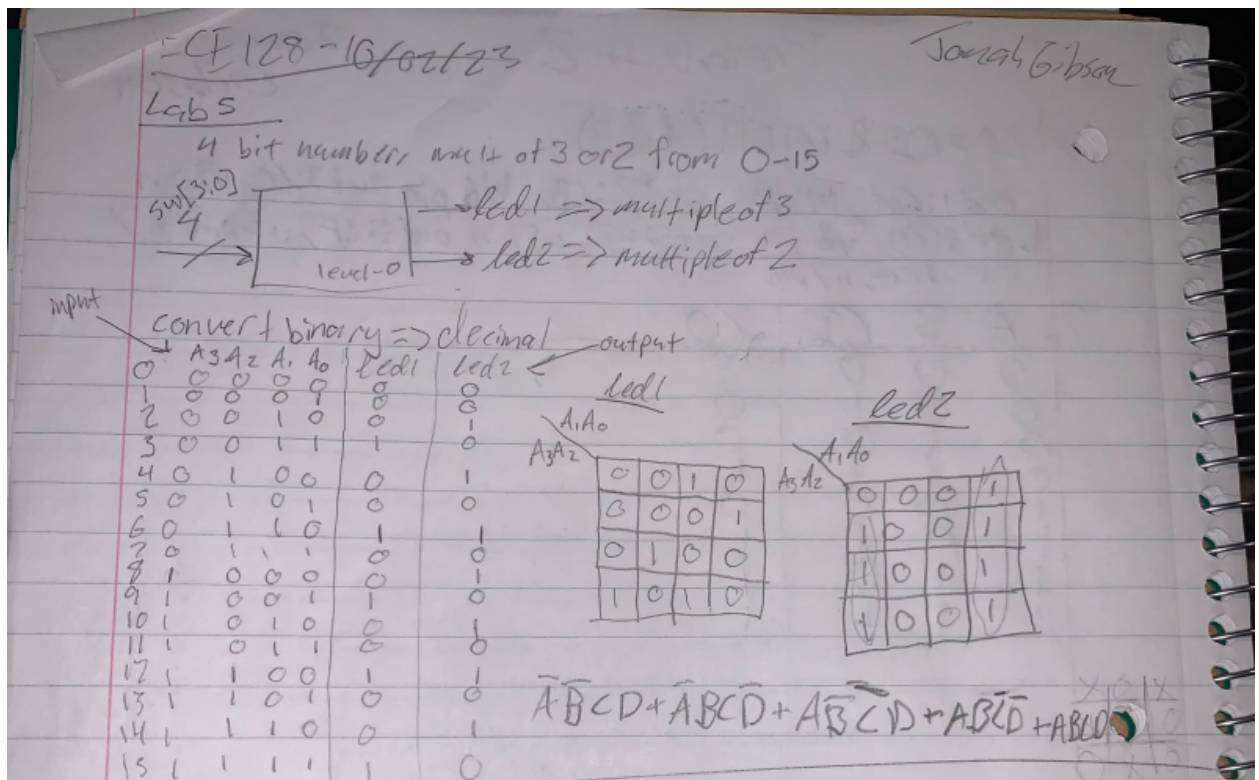 ECE 128 - 10/02/23
Jonah Gibson
Lab 5
4 bit number, mult of 3 or 2 from 0-15
sw[3:0]
4
led1 => multiple of 3
led2 => multiple of 2
level-0
input
convert binary => decimal
output
A3 A2 A1 A0 led1 led2
0 0 0 0 0 0 0
1 0 0 0 1 0 0
2 0 0 1 0 0 1
3 0 0 1 1 1 0
4 0 1 0 0 0 1
5 0 1 0 1 0 0
6 0 1 1 0 1 1
7 0 1 1 1 0 0
8 1 0 0 0 0 1
9 1 0 0 1 1 0
10 1 0 1 0 0 1
11 1 0 1 1 0 0
12 1 1 0 0 1 1
13 1 1 0 1 0 0
14 1 1 1 0 0 1
15 1 1 1 1 1 0
led1
A1A0
A3A2
0 0 1 0
0 0 0 1
0 1 0 0
1 0 1 0
led2
A1A0
A3A2
0 0 0 1
1 0 0 1
1 0 0 1
1 0 0 1
A̅B̅CD + A̅BCD̅ + AB̅C̅D + ABC̅D̅ + ABCD